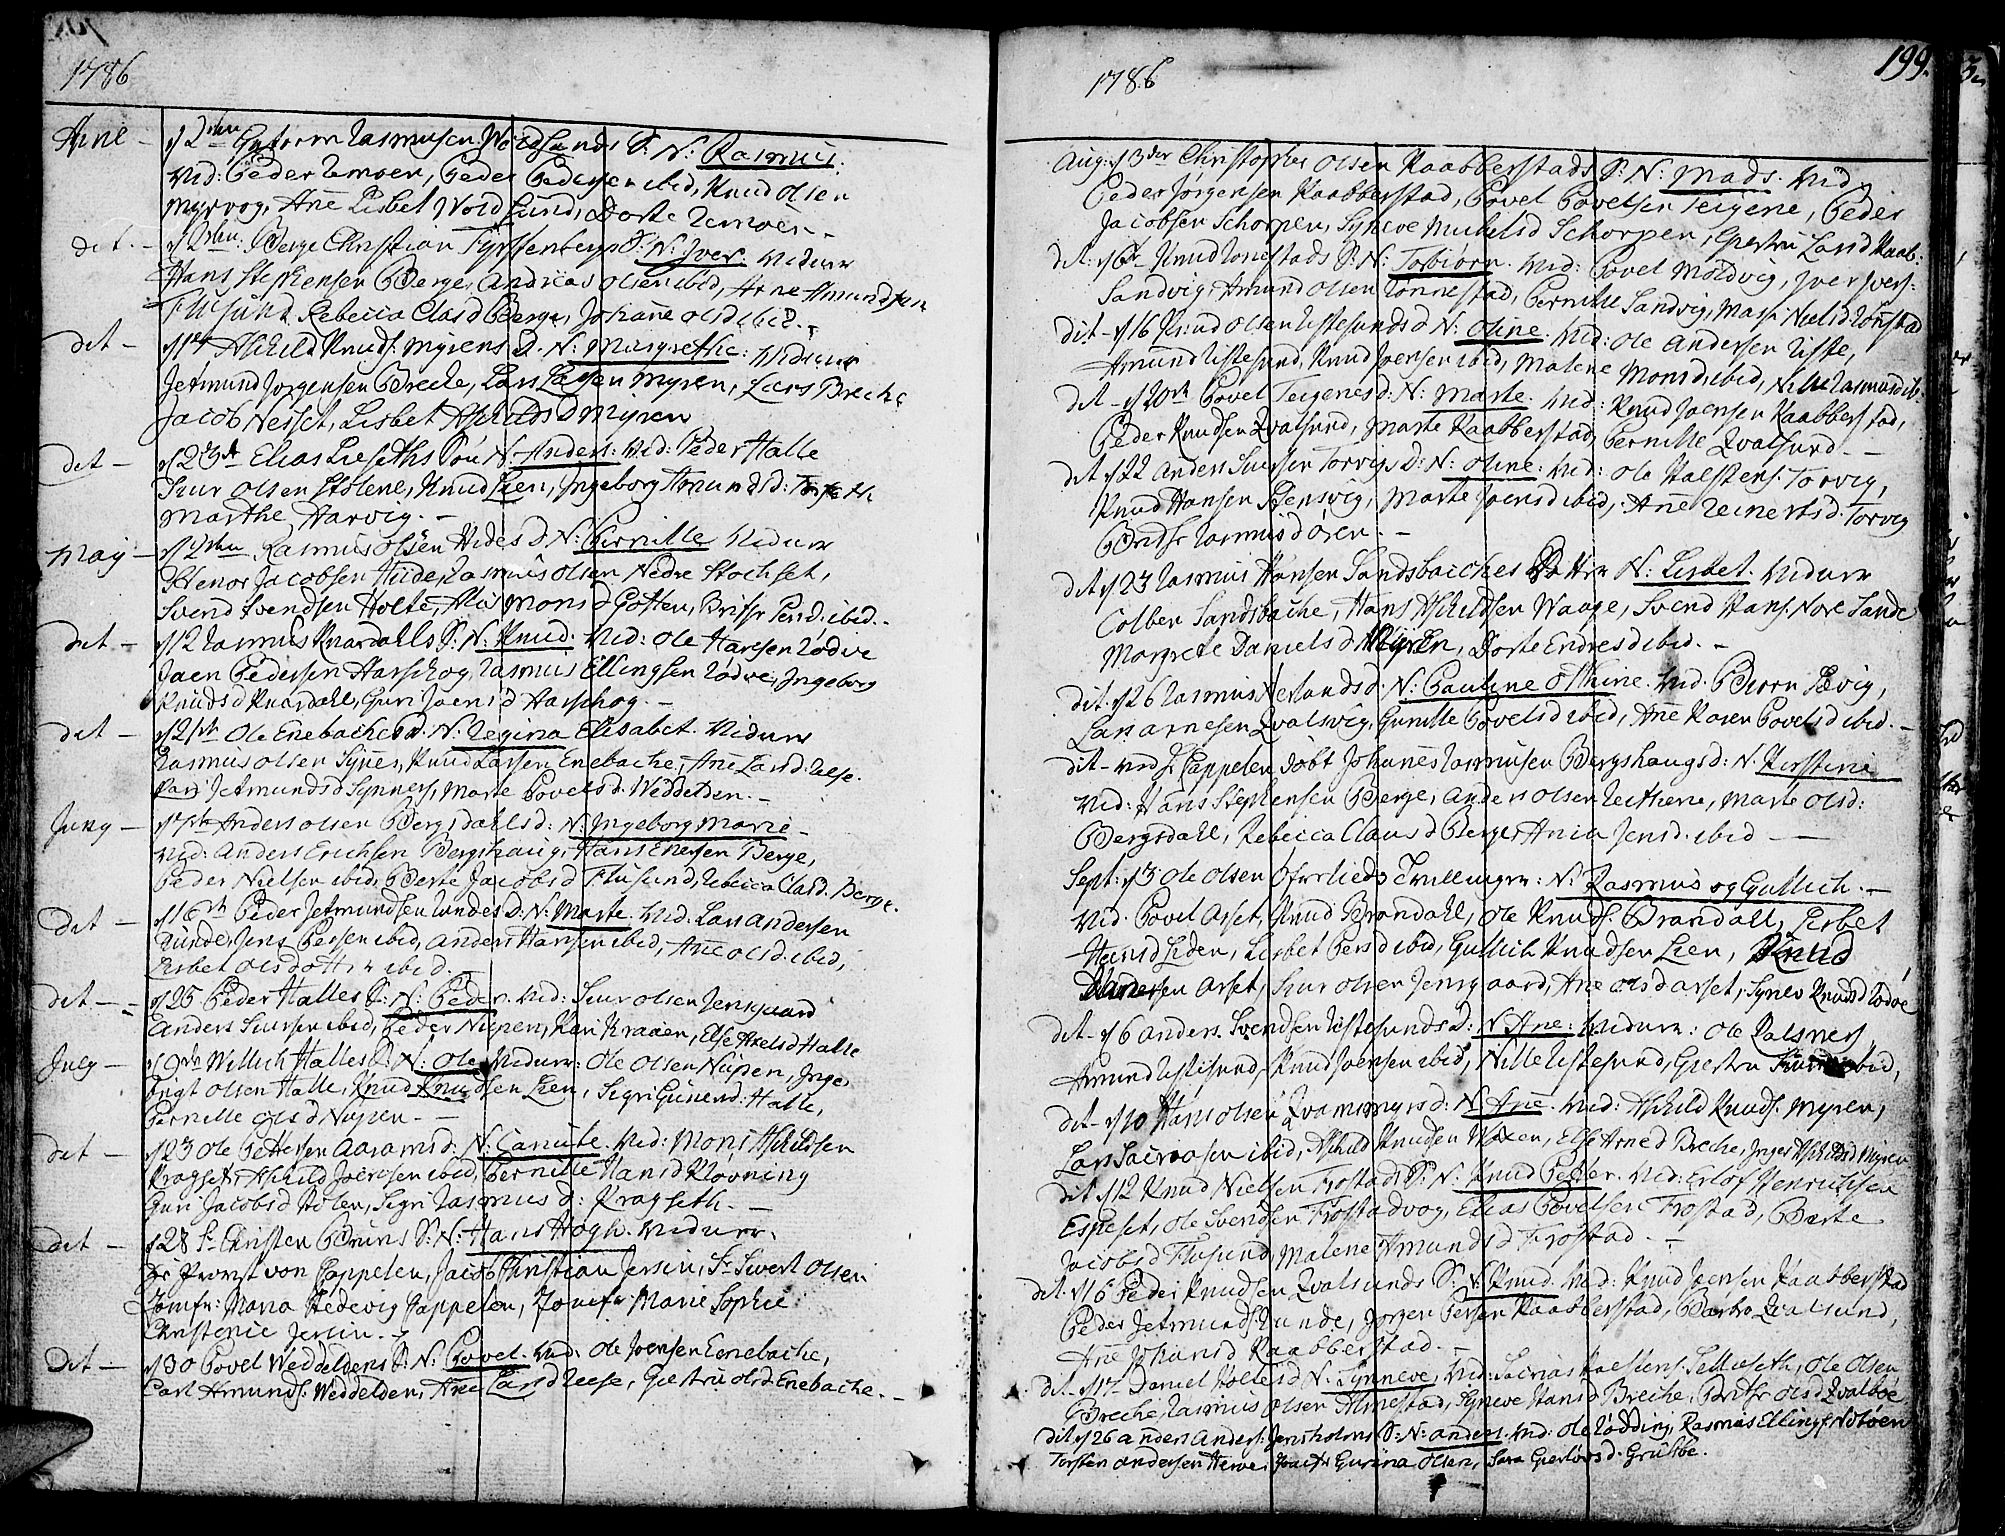 1786
Apne - d 2den Guttorm Rasmusen Nordsunds S: N: Rasmus.
Vid: Peder Remoen, Peder Pedersen ibid, Knud Olsen
Myrvog, Ane Lisbet Nordsund, Dorte Remoen -
det. - d 2den: Berge Christian Fyrstenbergs S: N: Iver. Vidner
Hans Stephensen Berge, Andreas Olsen ibid, Arne Amundsen
Flusund, Rebecca Clasd Berge, Johane Olsd ibid. -
det - Askild Knuds: Myrens D. N: Margrethe: Vidner
Jetmund Jorgensen Breche, Lars Larsen Myren, Lars Breche
Jacob Nesset, Lisbet Askilds D Myren
det - d 23de Elias Lieseths Søn N: Anders: Vid: Peder Halle
Siur Olsen Stolene, Knud Lien, Ingeborg Amundsd:
Marthe Harvig. -
May - d 2den Rasmus Olsen Hides D N: Pernille Vidner
Elenor Jacobsen Hiide, Rasmus Olsen Nedre Stochset,
Svend Svendsen Holte, Mons D Gotten, Brithe Persd. ibid. -
det - d 12 Rasmus Knardahls S: N: Knud. Vid: Ole Hansen Rødve
Joen Pedersen Harschog, Rasmus Ellingsen Rødve, Ingeborg
Knudsd Knardahl, Guri Joensd Harschog. -
det - d 21de Ole Enebaches D. N: Regina Elisabet. Vidner
Rasmus Olsen Synes, Knud Larsen Enebache, Ane Larsd. Reese.
Kari Jetmundsd Synnes, Marte Povelsd. Weddelden. -
Juny - Anders Olsen Bergsdahls d: N: Ingeborg Marie -
Vid: Anders Erichsen Bergshaug, Hans Enersen Berge,
Peder Nielsen ibid, Berte Jacobsd Flusund, Rebecca Clasd. Berge.
det - d 16de Peder Jetmundsen Rundes D: N: Marte. Vid. Lars Andersen
Runde, Jens Persen ibid, Anders Hansen ibid, Ane Olsd. ibid,
Lisbet Olsdotter ibid. -
det - - d 25 Peder Halles S: N: Peder. Vid: Siur Olsen Jensgaard
Anders Siursen ibid, Peder Nupen, Kari Kraaen, Else Axelsd Halle
July - d 9de Willich Halles S. N: Ole. Vidner: Ole Olsen Nupen, Inge
brigt Olsen Halle, Knud Knudsen Lien, Sigri Gunersd: Halle,
Pernille Olsd Nupen. -
det - d 23 Ole Pettersen Aarams d: N: Canute. Vid: Mons Askildsen
Kragset, Askild Joensen ibid, Pernille Hansd Klovning
Guri Jacobsd Holen, Sigri Rasmus d: Kragseth. -
det - d 28 Sr. Christen Bruns S: N: Hans Hogh. Vidner.
Hr Provst von Cappelen, Jacob Christian Jersin, Sr. Sivert Olsen
Jomfr: Maria Hedevig Cappelen, Jomfr Marie Sophie
Christence Jersin. -
Det - d 30 Povel Weddeldens S: N: Povel. Vid: Ole Joensen Enebache,
Carl Amunds: Weddelden, Ane Larsd Reese, Giertru Olsd Enebache. -
1786
199.
Aug: d 3der Christopher Olsen Raabberstads S: N: Mads. Vid.
Peder Jørgensen Raabberstad, Povel Povelsen Teigene, Peder
Jacobsen Schorpen, Syneve Michelsd Schorpen, Giertru Larsd Raab:
det: d 6te Knud Tonestads S: N: Torbiørn. Vid: Povel Moldvig, Iver Ivers:
Sandvig, Amund Olsen Tonnestad, Pernille Sandvig, Masi Nielsd Tønestad
dit - d 16 Knud Olsen Ristesunds d N: Oline. Vid: Ole Andersen Riste,
Amund Ristesund, Knud Joensen ibid, Malene Monsd. ibid, Nille Rasmusd ib:
det - d 20de Povel Teigenes d: N: Marte. Vid: Knud Joensen Raabberstad,
Peder Knudsen Qvalsund, Marte Raabberstad, Pernille Qvalsund. -
det d 22 Anders Siursen Torvigs D: N: Oline: Vid: Ole Halstens: Torvig,
Knud Hansen Stensvig, Marte Joensd ibid, Ane Reinertsd. Torvig
Brithe Rasmusd Osen. -
det d 23 Rasmus Hansen Sandsbaches Datter N: Lisbet. Vidner
Colben Sandsbache, Hans Askildsen Waage, Svend Hans: Nore Sande
Margrete Daniels d Myren, Dorte Endresd ibid. -
dit. d 26 Rasmus Nerlands d: N: Pauline Othine. Vid. Biørn Sævig,
Lars Arnesen Qvalsvig, Gunille Povelsd ibid, Ane Karen Povelsd ibid. -
dit - ved H. Cappelen døbt Johannes Rasmusen Bergshaugs d: N. Kirstine
Vid: Hans Stephensen Berge, Anders Olsen Leithene, Marte Olsd:
Bergsdahl, Rebecca Claus d Berge, Ania Jensd. ibid -
Sept: d 3 Ole Olsen Ofverlieds Tvillinger: N: Rasmus og Gullich. -
Vid. Povel Arset, Knud Brandahl, Ole Knuds: Brandahl, Lisbet
Hansd Liden, Lisbet Persd ibid, Gullich Knudsen Lien, Knud
Andersen Arset, Siur Olsen Jensgaard, Ane Olsd Arset, Synev Knudsd Rødve
det - d 6 Anders. Svendsen Ristesunds D: N. Ane: Vidner: Ole Kalsnes,
Amund Ristesund, Knud Joensen ibid, Nille Ristesund, Giertru ibid,
det - d 10 Hans Olsen Qvamsmyrs d: N. Ane. Vid: Askild Knuds: Myren,
Lars Sacriasen ibid, Askild Knudsen Waxen, Else Arne d Breche, Inger Askildsd Myren
dit d 12 Knud Nielsen Frostads S: N: Knud Peder. Vid: Erlof Henrichsen
Espeset, Ole Svendsen Frostadvog, Elias Povelsen Frostad, Berte
Jacobsd Flusund, Malene Amundsd Frostad. -
det. d 16 Peder Knudsen Qvalsunds S: N: Knud. Vid: Knud Joensen Raabberstad
Peder Jetmunds: Runde, Jorgen Persen Raabberstad, Barbro Qvalsund,
Ane Johansd Raabberstad. -
dit - d 17 Daniel Holtes d N: Synneve, Vid: Sacrias Halstens: Sellieseth, Ole Olsen
Breche, Rasmus Olsen Almestad, Syneve Hansd Breche, Brithe Olsd Qvalbøe
dit d 26 Anders Anders: Jensholms S: N: Anders. Vid: Ole Rødding, Rasmus Ellings: Notøen
Torsten Andersen Herøe, Jomfr Gurina Olsen, Sara Giertsd: Grudse.